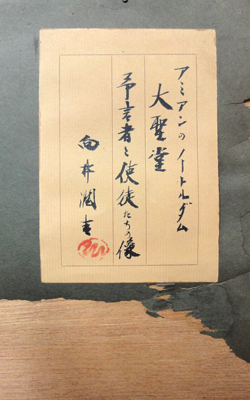 アミアンのノートルダム
大聖堂
予言者と使徒たちの像
向井潤吉